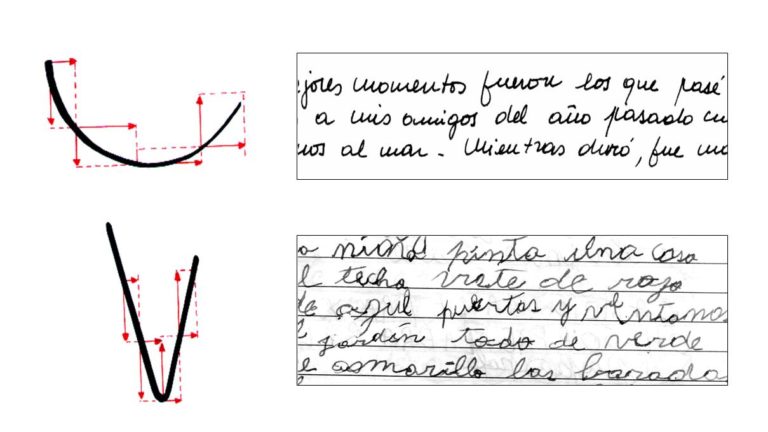 jores momentos fueron los que pasé
a mis amigos del año pasado cu
nos al mar. Mientras duró, fue mu
a niana pinta una casa
l techo viste de rojo
de azul puertas y ventanas
jardín todo de verde
e asmarillo las barada